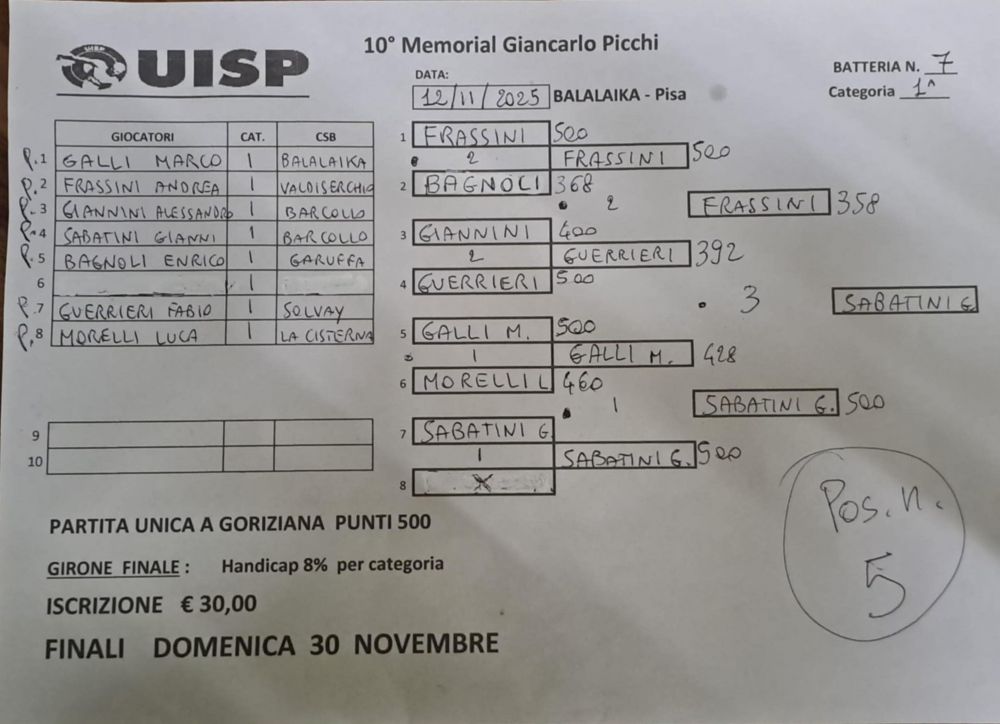 UISP
10° Memorial Giancarlo Picchi
DATA:
12/11/2025 BALALAIKA - Pisa
BATTERIA N. 7
Categoria 1^
GIOCATORI CAT. CSB
P.1 GALLI MARCO 1 BALALAIKA
P.2 FRASSINI ANDREA 1 VALDISERCHIO
P.3 GIANNINI ALESSANDRO 1 BARCOLLO
P.4 SABATINI GIANNI 1 BARCOLLO
P.5 BAGNOLI ENRICO 1 GARUFFA
6 1
P.7 GUERRIERI FABIO 1 SOLVAY
P.8 MORELLI LUCA 1 LA CISTERNA
9
10
1 FRASSINI 500
2 FRASSINI 500
2 BAGNOLI 368
2 FRASSINI 358
3 GIANNINI 400
2 GUERRIERI 392
4 GUERRIERI 500
3 SABATINI G.
5 GALLI M. 500
1 GALLI M. 428
6 MORELLI L 460
1 SABATINI G. 500
7 SABATINI G.
1 SABATINI G. 500
8 X
PARTITA UNICA A GORIZIANA PUNTI 500
GIRONE FINALE : Handicap 8% per categoria
ISCRIZIONE € 30,00
FINALI DOMENICA 30 NOVEMBRE
Pos. n.
5